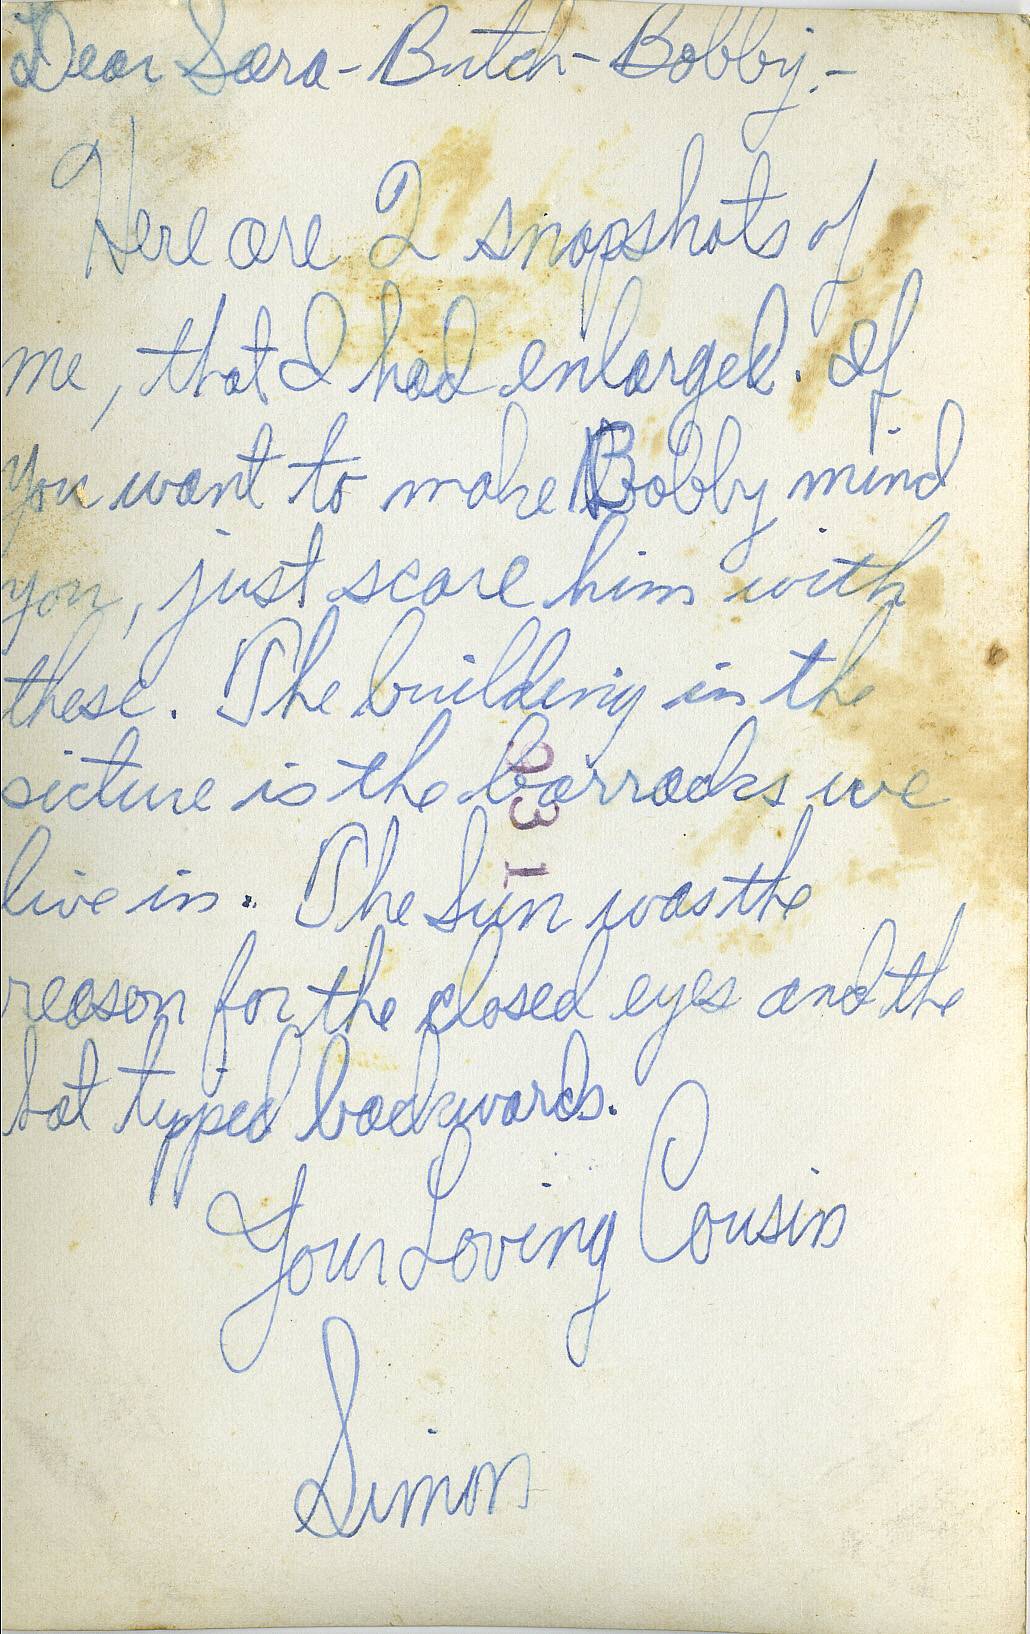 Dear Sara - Butch - Bobby. -
Here are 2 snapshots of
me, that I had enlarged. If
you want to make Bobby mind
you, just scare him with
these. The building in the
picture is the barracks we
live in. The Sun was the
reason for the closed eyes and the
hat typped backwards.
Your Loving Cousin
Simon